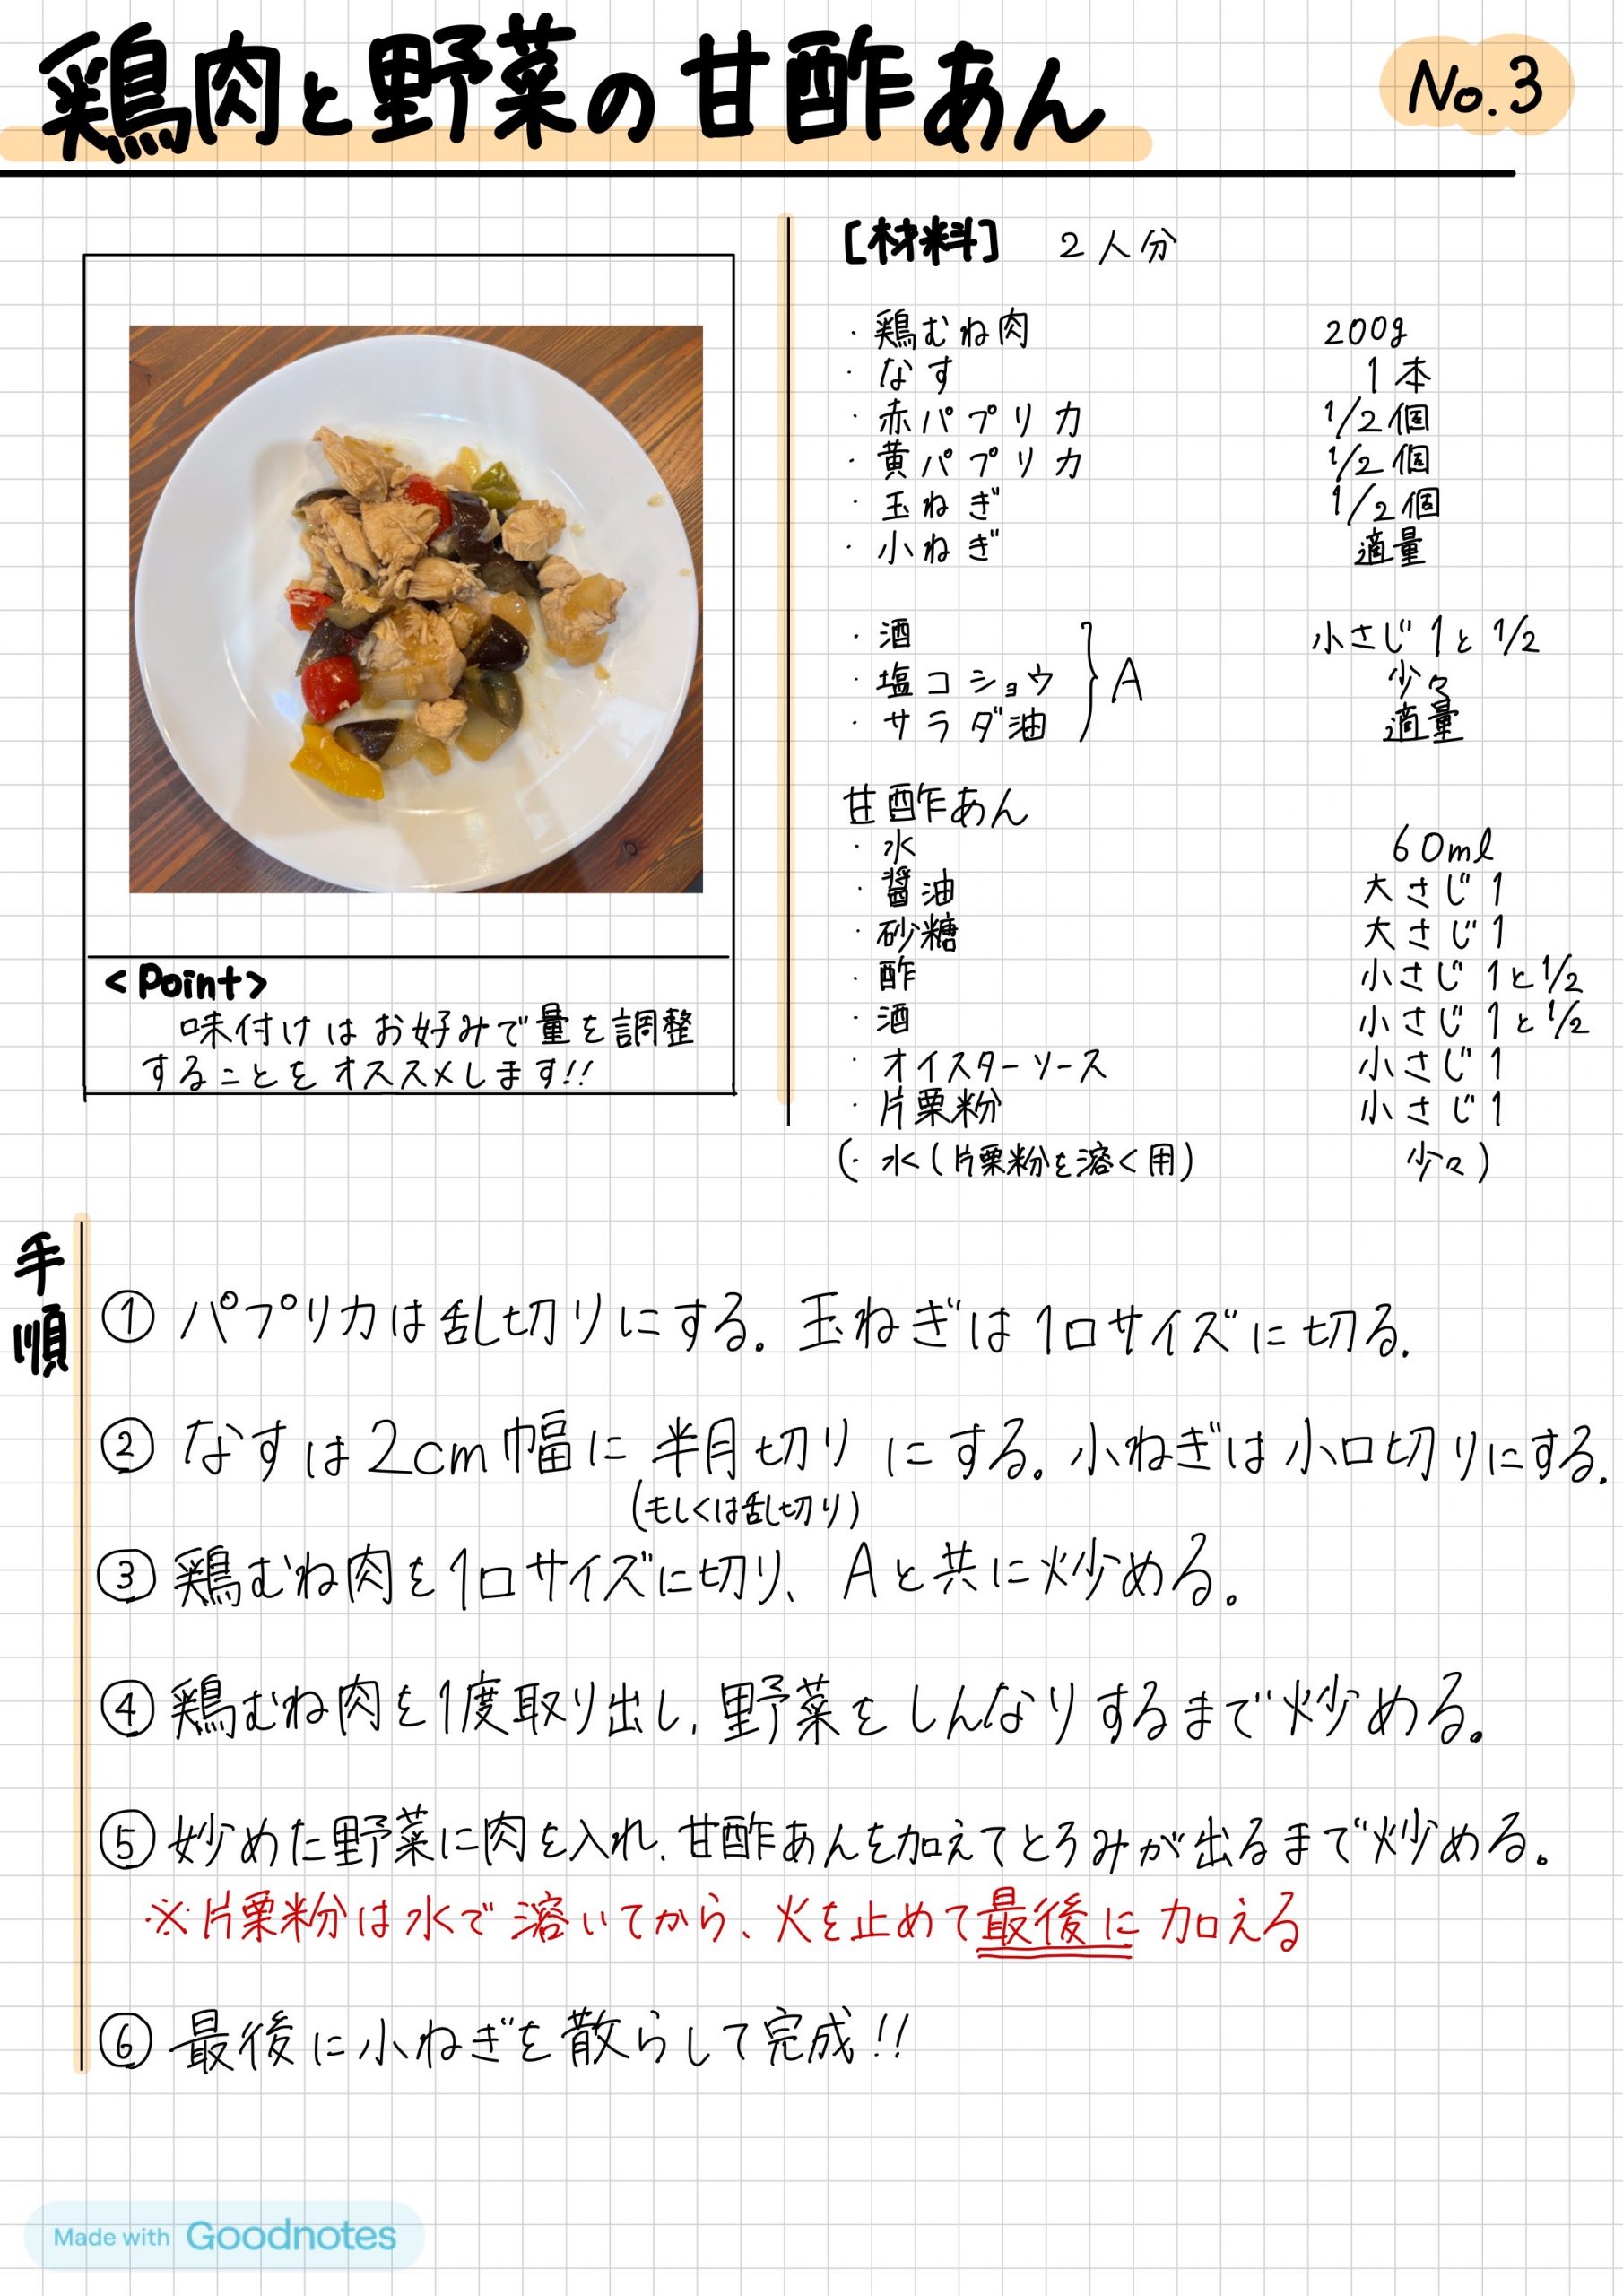 鶏肉と野菜の甘酢あん
No.3
[材料] 2人分
・鶏むね肉 200g
・なす 1本
・赤パプリカ 1/2個
・黄パプリカ 1/2個
・玉ねぎ 1/2個
・小ねぎ 適量
・酒 小さじ1と1/2
・塩コショウ } A 少々
・サラダ油 適量
甘酢あん
・水 60ml
・醤油 大さじ1
・砂糖 大さじ1
・酢 小さじ1と1/2
・酒 小さじ1と1/2
・オイスターソース 小さじ1
・片栗粉 小さじ1
(・水(片栗粉を溶く用) 少々)
<Point>
味付けはお好みで量を調整
することをオススメします!!
手順
① パプリカは乱切りにする。玉ねぎは1口サイズに切る.
② なすは2cm幅に半月切りにする。小ねぎは小口切りにする.
(もしくは乱切り)
③ 鶏むね肉を1口サイズに切り、Aと共に炒める。
④ 鶏むね肉を1度取り出し、野菜をしんなりするまで炒める。
⑤ 炒めた野菜に肉を入れ、甘酢あんを加えてとろみが出るまで炒める。
※片栗粉は水で溶いてから、火を止めて最後に加える
⑥ 最後に小ねぎを散らして完成!!
Made with Goodnotes